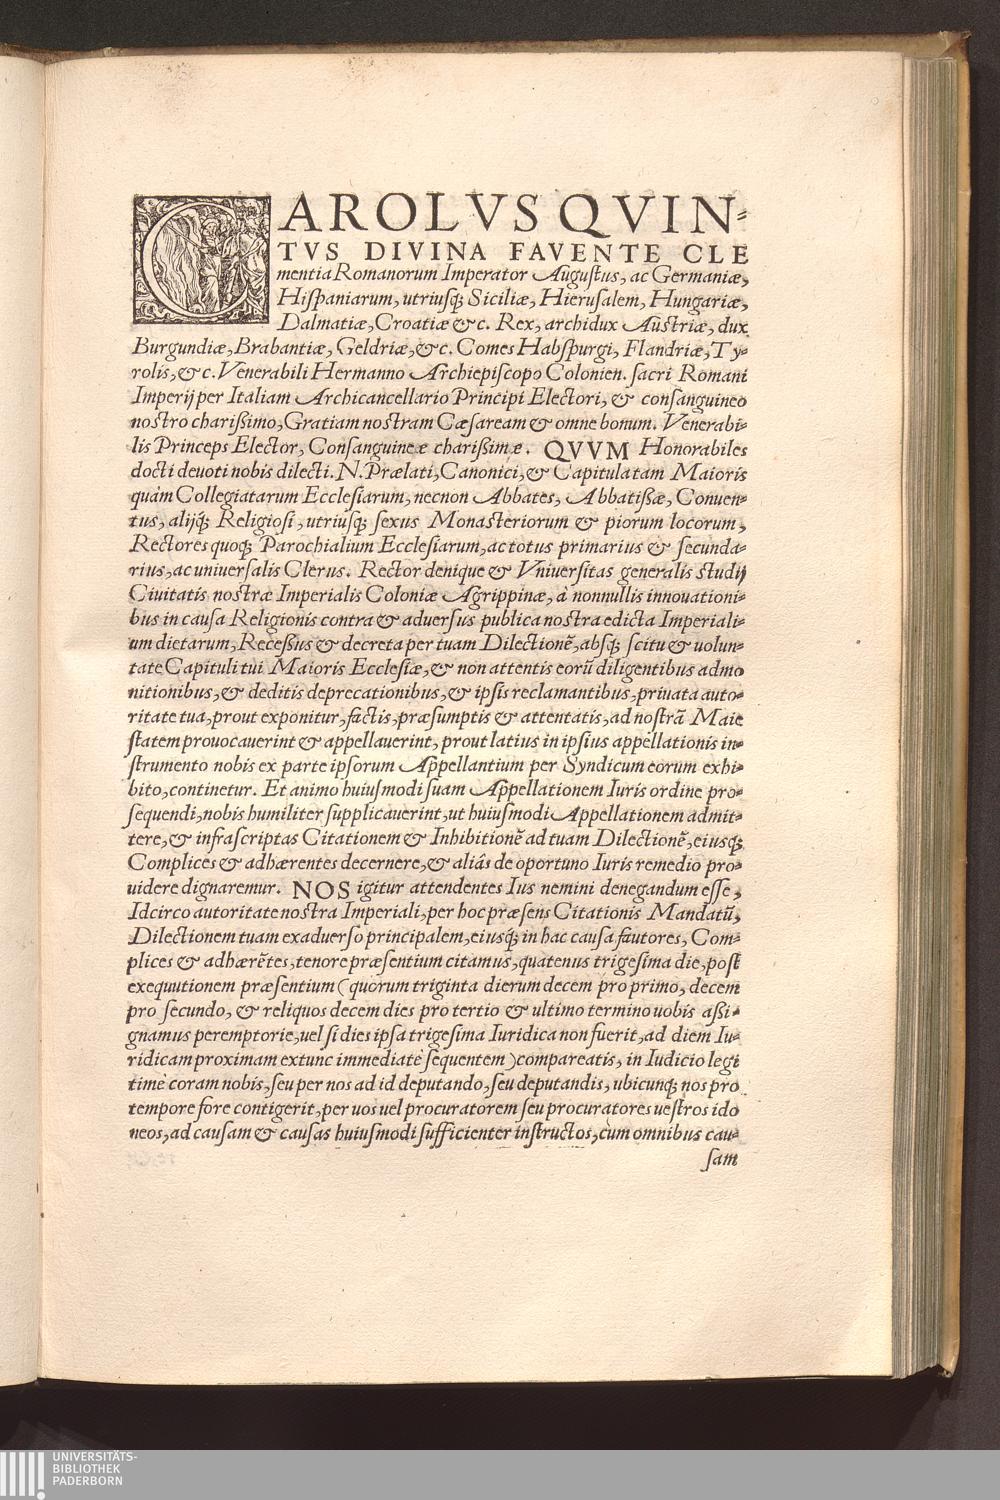 CAROLVS QVIN-
TVS DIVINA FAVENTE CLE
mentia Romanorum Imperator Augustus, ac Germaniæ,
Hispaniarum, utriusq; Siciliæ, Hierusalem, Hungariæ,
Dalmatiæ, Croatiæ &c. Rex, archidux Austriæ, dux
Burgundiæ, Brabantiæ, Geldriæ, &c. Comes Habspurgi, Flandriæ, Ty-
rolis, &c. Venerabili Hermanno Archiepiscopo Colonien. sacri Romani
Imperij per Italiam Archicancellario Principi Electori, & consanguineo
nostro charißimo, Gratiam nostram Cæsaream & omne bonum. Venerabi-
lis Princeps Elector, Consanguineæ charißimæ. QVVM Honorabiles
docti deuoti nobis dilecti. N. Prælati, Canonici, & Capitula tam Maioris
quàm Collegiatarum Ecclesiarum, necnon Abbates, Abbatißæ, Conuen-
tus, alijq́; Religiosi, utriusq; sexus Monasteriorum & piorum locorum,
Rectores quoq; Parochialium Ecclesiarum, ac totus primarius & secunda-
rius, ac uniuersalis Clerus. Rector denique & Vniuersitas generalis studij
Ciuitatis nostræ Imperialis Coloniæ Agrippinæ, à nonnullis innouationi-
bus in causa Religionis contra & aduersus publica nostra edicta Imperiali-
um dietarum, Receßus & decreta per tuam Dilectionē, absq; scitu & uolun-
tate Capituli tui Maioris Ecclesiæ, & non attentis eorū diligentibus admo
nitionibus, & deditis deprecationibus, & ipsis reclamantibus, priuata auto-
ritate tua, prout exponitur, factis, præsumptis & attentatis, ad nostrā Maie
statem prouocauerint & appellauerint, prout latius in ipsius appellationis in-
strumento nobis ex parte ipsorum Appellantium per Syndicum eorum exhi-
bito, continetur. Et animo huiusmodi suam Appellationem Iuris ordine pro-
sequendi, nobis humiliter supplicauerint, ut huiusmodi Appellationem admit-
tere, & infrascriptas Citationem & Inhibitionē ad tuam Dilectionē, eiusq;
Complices & adhærentes decernere, & aliâs de oportuno Iuris remedio pro-
uidere dignaremur. NOS igitur attendentes Ius nemini denegandum esse,
Idcirco autoritate nostra Imperiali, per hoc præsens Citationis Mandatū,
Dilectionem tuam ex aduerso principalem, eiusq́; in hac causa fautores, Com-
plices & adhærētes, tenore præsentium citamus, quatenus trigesima die, post
exequutionem præsentium (quorum triginta dierum decem pro primo, decem
pro secundo, & reliquos decem dies pro tertio & ultimo termino uobis aßi-
gnamus peremptorie, uel si dies ipsa trigesima Iuridica non fuerit, ad diem Iu-
ridicam proximam extunc immediatè sequentem) compareatis, in Iudicio legi
timè coram nobis, seu per nos ad id deputando, seu deputandis, ubicunq; nos pro
tempore fore contigerit, per uos uel procuratorem seu procuratores uestros ido
neos, ad causam & causas huiusmodi sufficienter instructos, cum omnibus cau-
sam
UNIVERSITÄTS-
BIBLIOTHEK
PADERBORN